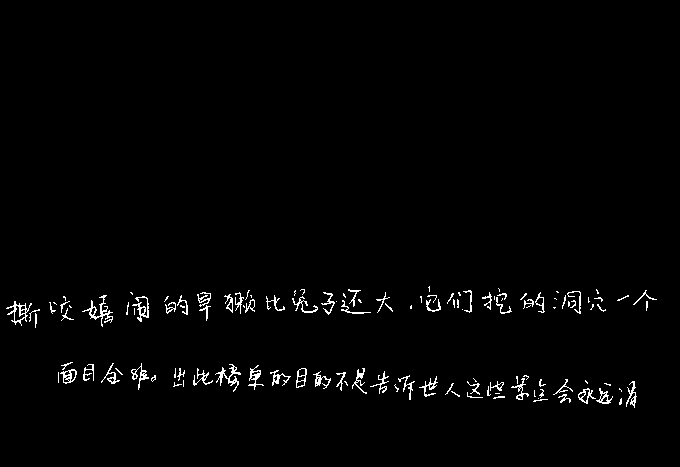 撕咬嬉闹的旱獭比兔子还大,它们挖的洞穴一个
面目全非。出此榜单的目的不是告诉世人这些景点会永远消